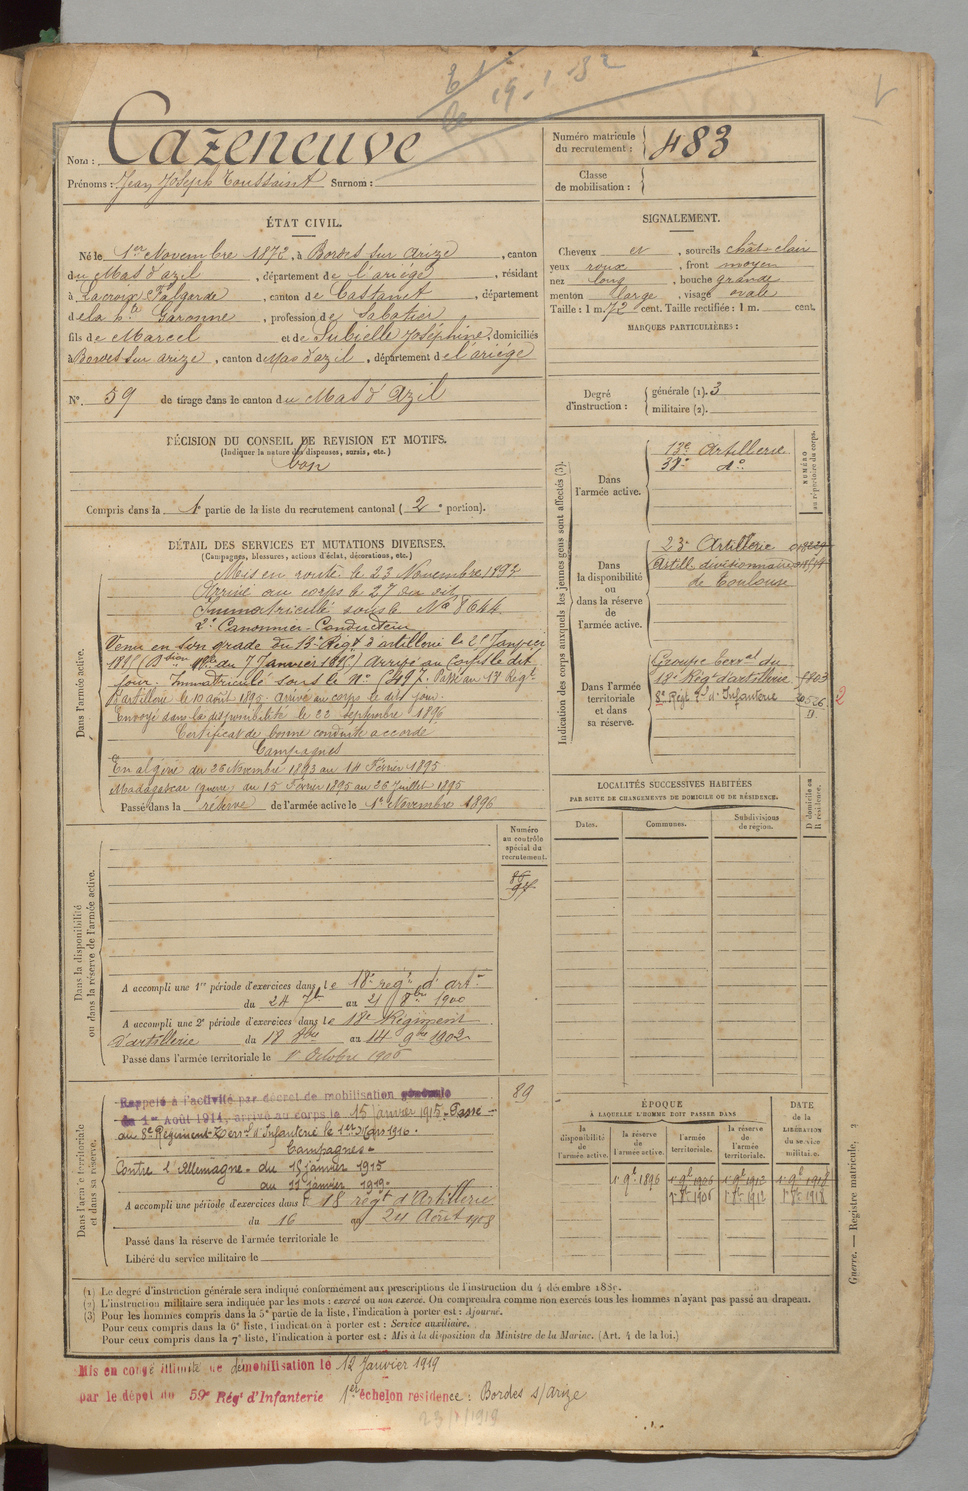 Nom : Cazeneuve
Prénoms : Jean Joseph Toussaint Surnom :
Numéro matricule du recrutement : 483
Classe de mobilisation :
ÉTAT CIVIL.
Né le 1er Novembre 1872, à Bordes sur Arize, canton
du Mas d'azil, département de l'ariège, résidant
à Lacroix Falgarde, canton de Castanet, département
de la hte Garonne, profession de Sabotier
fils de Marcel et de Subielle Joséphine, domiciliés
à Bordes sur arize, canton du Mas d'azil, département de l'ariége
N° 59 de tirage dans le canton du Mas d'Azil
SIGNALEMENT.
Cheveux et, sourcils chât-clair
yeux roux, front moyen
nez long, bouche grande
menton large, visage ovale
Taille : 1 m. 72 cent. Taille rectifiée : 1 m. cent.
MARQUES PARTICULIÈRES :
Degré d'instruction : générale (1). 3
militaire (2).
DÉCISION DU CONSEIL DE REVISION ET MOTIFS.
(Indiquer la nature des dispenses, sursis, etc.)
bon
Compris dans la 1 partie de la liste du recrutement cantonal (2e portion).
DÉTAIL DES SERVICES ET MUTATIONS DIVERSES.
(Campagnes, blessures, actions d'éclat, décorations, etc.)
Dans l'armée active.
Mis en route le 23 Novembre 1893
Arrivé au corps le 27 du dit
Immatriculé sous le No 8644
2e Canonnier-Conducteur
Venu en son grade du 13e Régt d'artillerie le
Janvier 1895) Arrivé au Corps le dit
jour. Immatriculé sous le No Passé au 17 Régt
d'artillerie le 10 août 1895. Arrivé au corps le dit jour.
Envoyé dans la disponibilité le 22 Septembre 1896
Certificat de bonne conduite accordé
Campagnes
En algérie du 26 Novembre 1893 au 14 Février 1895
Madagascar (guerre) du 15 Février 1895 au 26 Juillet 1895
Passé dans la réserve de l'armée active le 1er Novembre 1896
Indication des corps auxquels les jeunes gens sont affectés (3).
NUMÉRO au répertoire du corps.
Dans l'armée active.
13e Artillerie
38e do
Dans la disponibilité ou dans la réserve de l'armée active.
23e Artillerie
Artill. divisionnaire
de Toulouse
Dans l'armée territoriale et dans sa réserve.
Groupe terral du
18e Régt d'artillerie 1803
8e Régt Tal d'Infanterie
2
LOCALITÉS SUCCESSIVES HABITÉES
PAR SUITE DE CHANGEMENTS DE DOMICILE OU DE RÉSIDENCE.
Dates. Communes. Subdivisions de région. D domicile ou R résidence.
Dans la disponibilité ou dans la réserve de l'armée active.
Numéro au contrôle spécial du recrutement.
A accompli une 1re période d'exercices dans le 18e régt d'artie
du 24 7bre au 21 8bre 1900
A accompli une 2e période d'exercices dans le 18e Régiment
d'artillerie du 18 8bre au 14 9bre 1902
Passé dans l'armée territoriale le 1er Octobre 1906
89
Dans l'armée territoriale et dans sa réserve.
Rappelé à l'activité par décret de mobilisation générale
du 1er Août 1914, arrivé au corps le 15 Janvier 1915. Passé
au 8e Régiment Terral d'Infanterie le 1er Mars 1916.
Campagnes
Contre l'Allemagne du 15 janvier 1915
au 11 janvier 1919.
A accompli une période d'exercices dans le 18 régt d'Artillerie
du 16 au 24 Août 1908
Passé dans la réserve de l'armée territoriale le
Libéré du service militaire le
ÉPOQUE
À LAQUELLE L'HOMME DOIT PASSER DANS
DATE de la LIBÉRATION du service militaire.
la disponibilité de l'armée active. la réserve de l'armée active. l'armée territoriale. la réserve de l'armée territoriale.
1r 9b 1896 1r 9b 1906 1r 9b 1912 1r 9b 1918
1r 8b 1906 1r 8b 1912 1r 8b 1918
Guerre. — Registre matricule, 2
(1) Le degré d'instruction générale sera indiqué conformément aux prescriptions de l'instruction du 4 décembre 1889.
(2) L'instruction militaire sera indiquée par les mots : exercé ou non exercé. On comprendra comme non exercés tous les hommes n'ayant pas passé au drapeau.
(3) Pour les hommes compris dans la 5e partie de la liste, l'indication à porter est : Ajourné.
Pour ceux compris dans la 6e liste, l'indication à porter est : Service auxiliaire.
Pour ceux compris dans la 7e liste, l'indication à porter est : Mis à la disposition du Ministre de la Marine. (Art. 4 de la loi.)
Mis en congé illimité de démobilisation le 12 Janvier 1919
par le dépôt du 59e Régt d'Infanterie 1er échelon résidence : Bordes s/arize